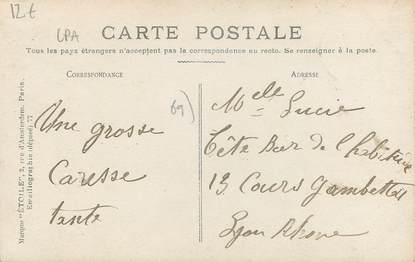 12 €
CPA
CARTE POSTALE
Tous les pays étrangers n'acceptent pas la correspondance au recto. Se renseigner à la poste.
CORRESPONDANCE
ADRESSE
69)
Une grosse
Caresse
tante
Melle Lucie
Tête Bar de l'habitude
13 Cours Gambetta
Lyon Rhone
Marque "ÉTOILE", 2, rue d'Amsterdam, Paris.